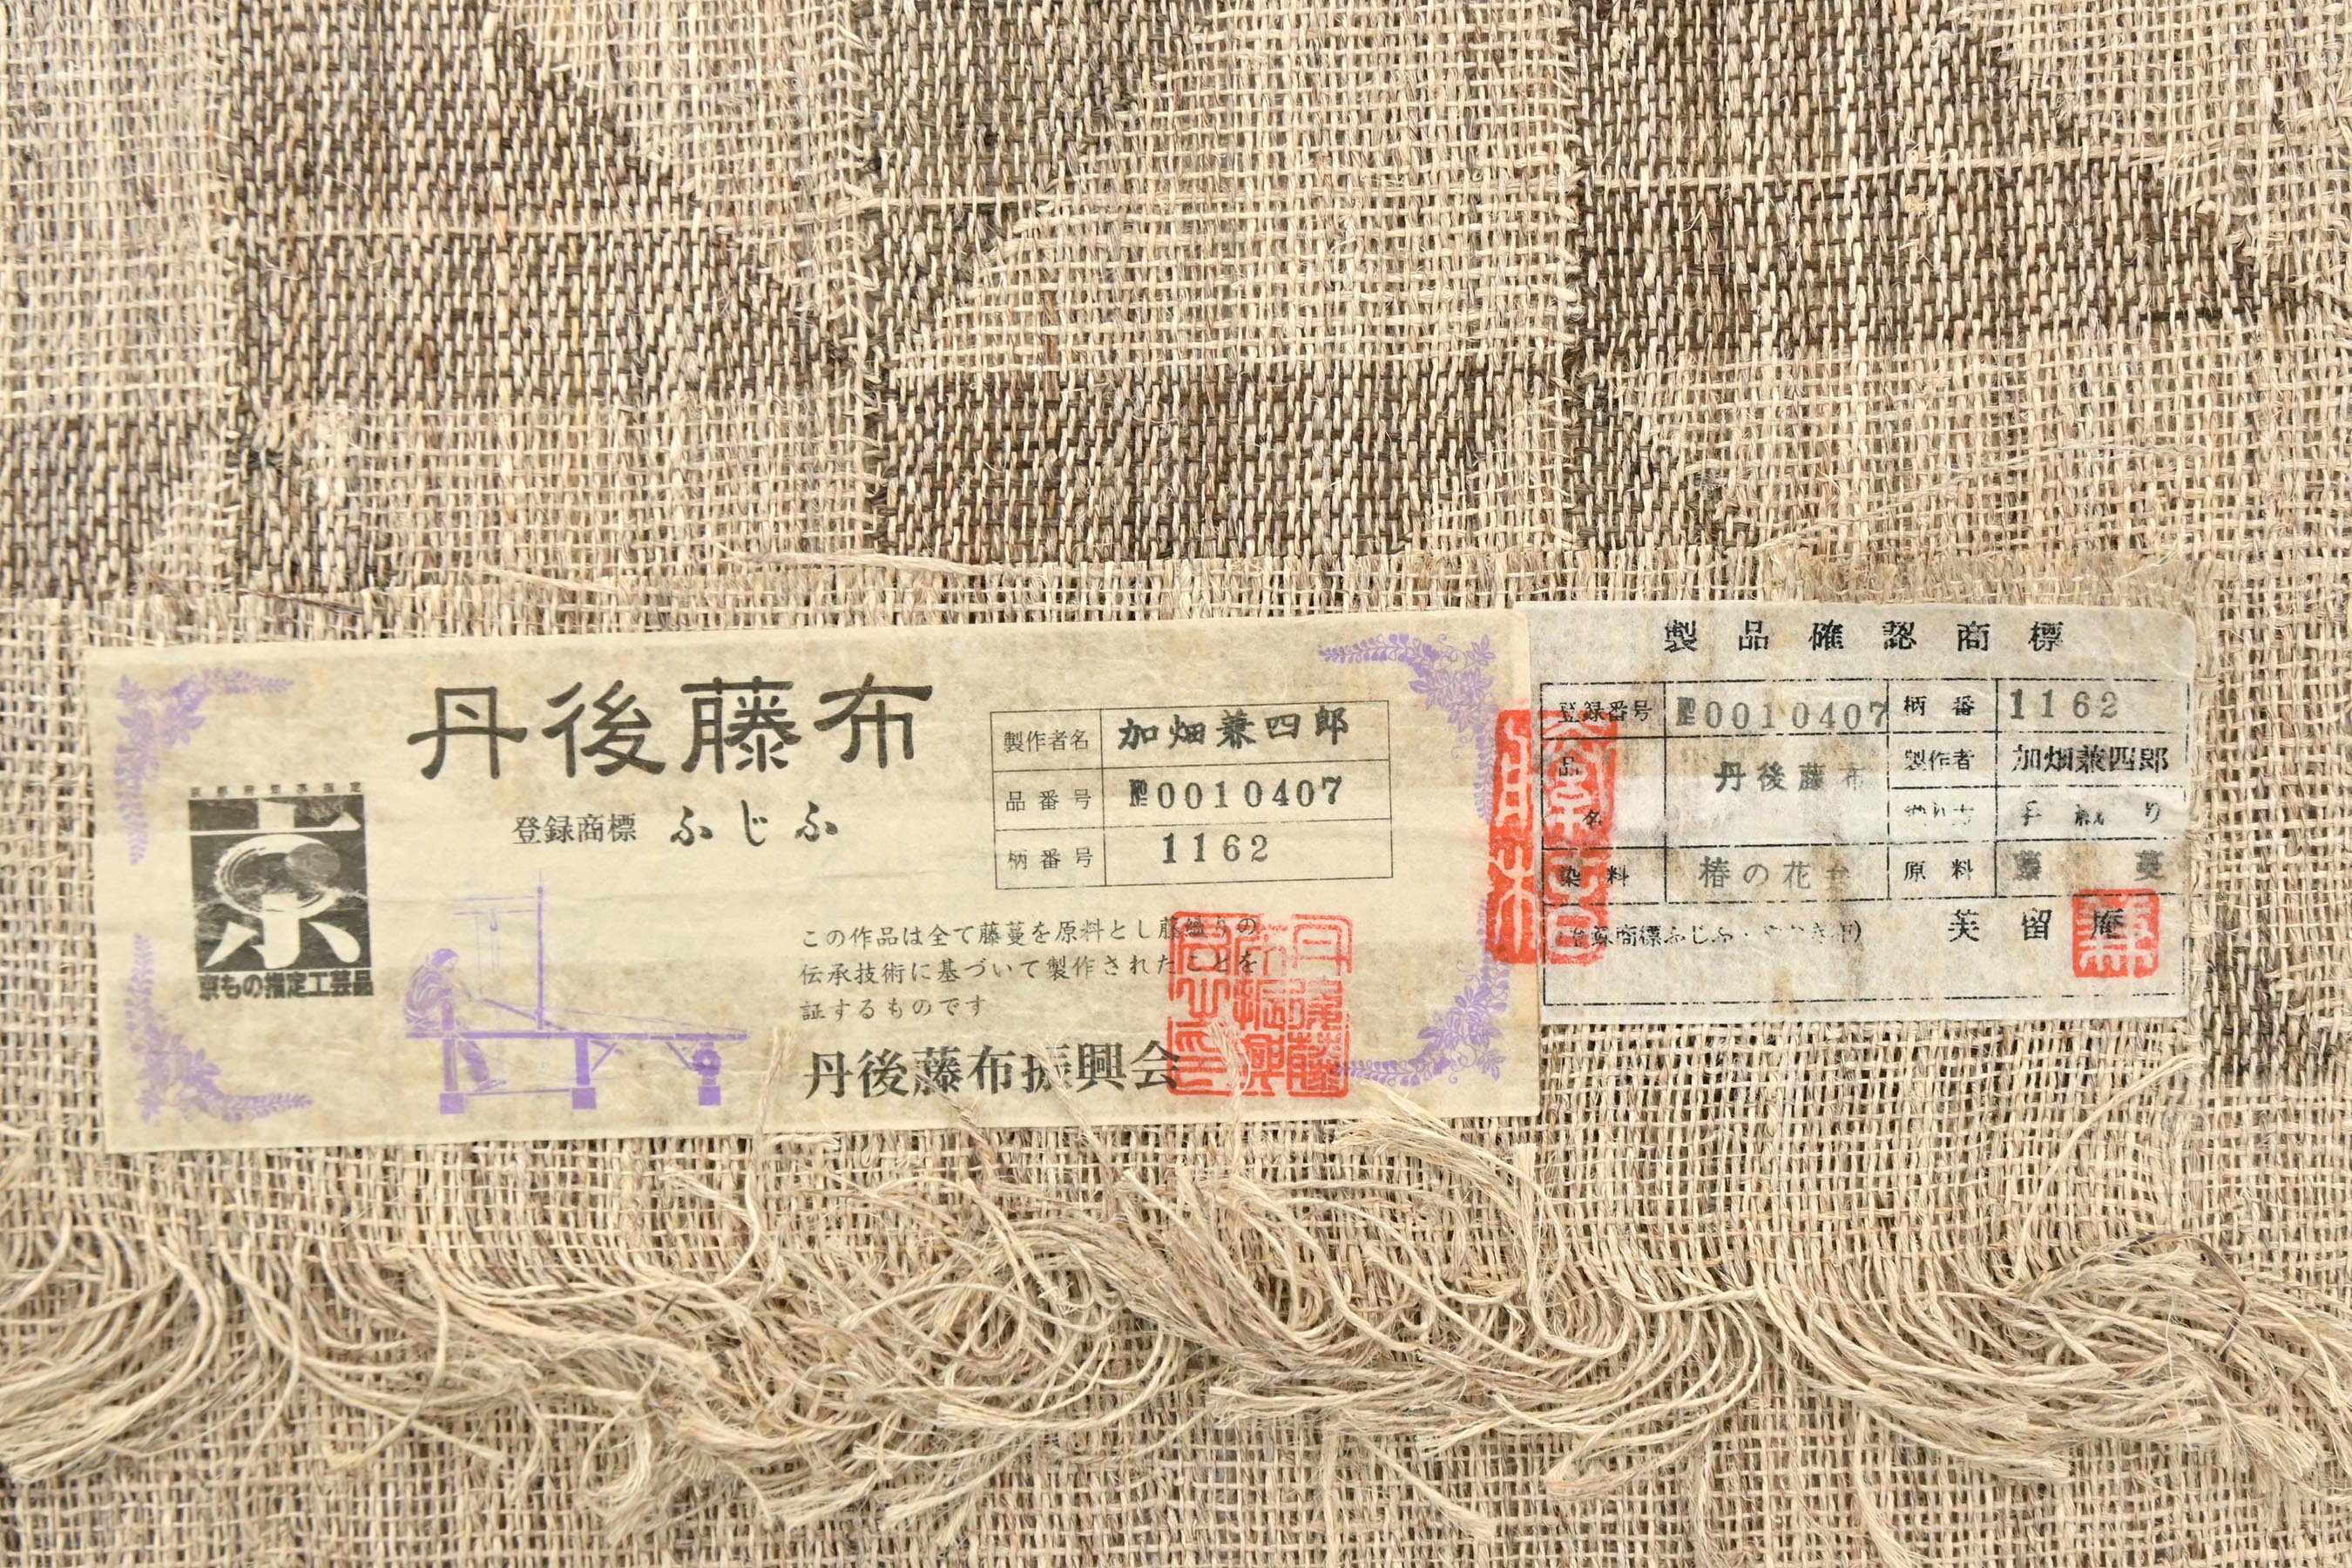 丹後藤布
登録商標 ふじふ
京
京もの指定工芸品
製作者名 加畑兼四郎
品番号 0010407
柄番号 1162
この作品は全て藤蔓を原料とし藤織りの
伝承技術に基づいて製作されたことを
証するものです
丹後藤布振興会
製品確認商標
登録番号 0010407 柄番 1162
品名 丹後藤布 製作者 加畑兼四郎
手 り
染料 椿の花弁 原料 藤蔓
登録商標ふじふ
芙留庵